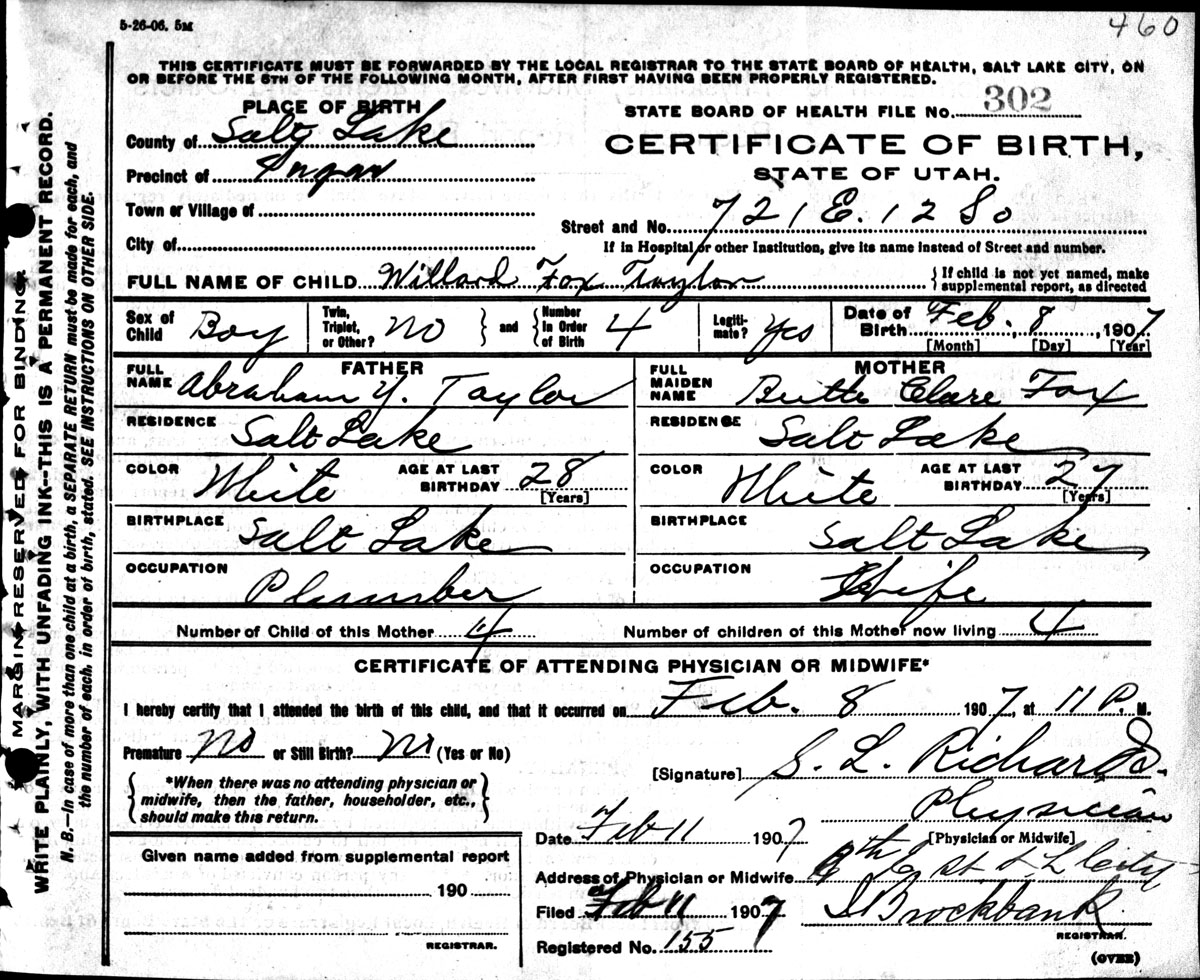 5-26-06. 5M
460
THIS CERTIFICATE MUST BE FORWARDED BY THE LOCAL REGISTRAR TO THE STATE BOARD OF HEALTH, SALT LAKE CITY, ON
OR BEFORE THE 5TH OF THE FOLLOWING MONTH, AFTER FIRST HAVING BEEN PROPERLY REGISTERED.
PLACE OF BIRTH
STATE BOARD OF HEALTH FILE No. 302
County of Salt Lake
CERTIFICATE OF BIRTH,
STATE OF UTAH.
Precinct of
Town or Village of
Street and No. 721 E. 12 So
City of
If in Hospital or other Institution, give its name instead of Street and number.
FULL NAME OF CHILD Willard Fox Taylor
{ If child is not yet named, make
supplemental report, as directed
Sex of Child Boy
Twin, Triplet, or Other? No } and { Number in Order of Birth 4
Legiti-mate? Yes
Date of Birth Feb. 8, 1907
[Month] [Day] [Year]
FATHER
FULL NAME Abraham Y. Taylor
RESIDENCE Salt Lake
COLOR White
AGE AT LAST BIRTHDAY 28
[Years]
BIRTHPLACE Salt Lake
OCCUPATION Plumber
MOTHER
FULL MAIDEN NAME Clare Fox
RESIDENCE Salt Lake
COLOR White
AGE AT LAST BIRTHDAY 27
[Years]
BIRTHPLACE Salt Lake
OCCUPATION H Wife
Number of Child of this Mother 4
Number of children of this Mother now living 4
CERTIFICATE OF ATTENDING PHYSICIAN OR MIDWIFE*
I hereby certify that I attended the birth of this child, and that it occurred on Feb. 8 1907, at 11 P. M.
Premature No or Still Birth? No (Yes or No)
[Signature] S. L. Richards.
{ *When there was no attending physician or
midwife, then the father, householder, etc.,
should make this return. }
Physician
[Physician or Midwife]
Date Feb 11 1907
Address of Physician or Midwife 6th E St S L City
Given name added from supplemental report
190
REGISTRAR.
Filed Feb 11 1907
J Brockbank
REGISTRAR.
Registered No. 155
(OVER)
MARGIN RESERVED FOR BINDING.
WRITE PLAINLY, WITH UNFADING INK--THIS IS A PERMANENT RECORD.
N. B.—In case of more than one child at a birth, a SEPARATE RETURN must be made for each, and
the number of each, in order of birth, stated. SEE INSTRUCTIONS ON OTHER SIDE.